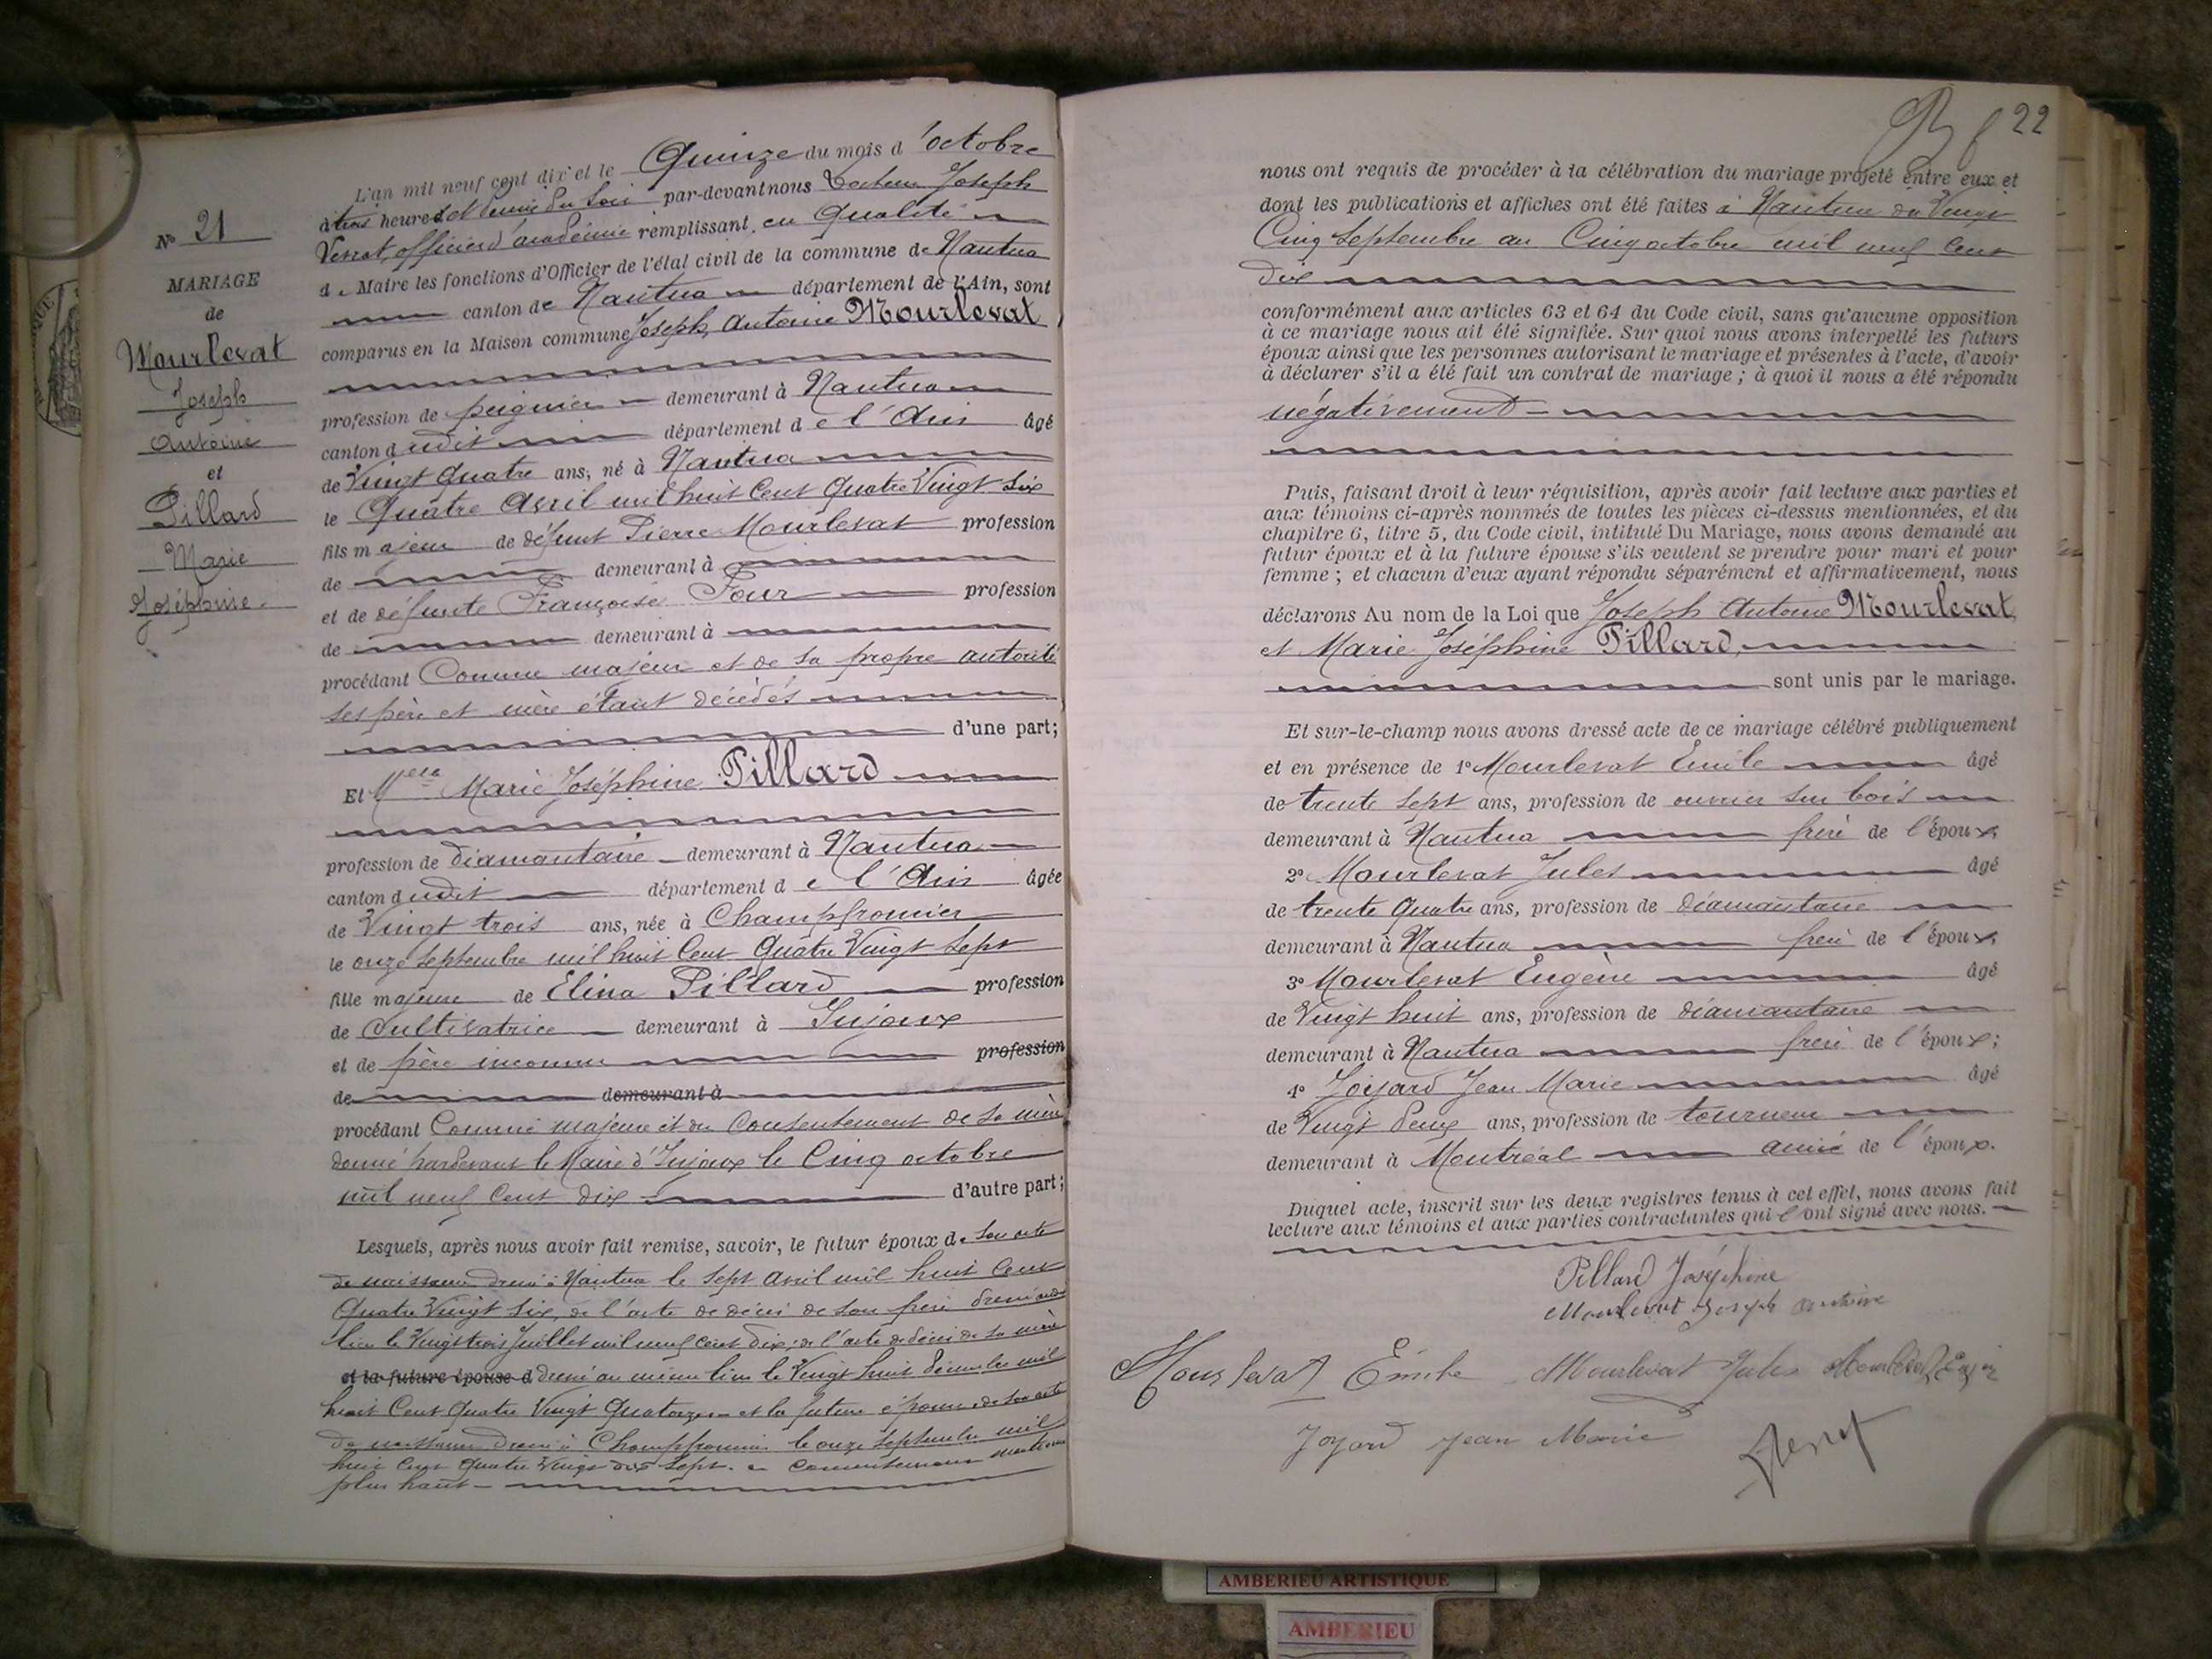 N° 21
MARIAGE
de
Mourlevat
Joseph
Antoine
et
Pillard
Marie
Joséphine.
L'an mil neuf cent dix et le Quinze du mois d'octobre
à trois heures et demie du soir par-devant nous Docteur Joseph
Verrat, officier d'académie remplissant en qualité
de Maire les fonctions d'Officier de l'état civil de la commune de Nantua
canton de Nantua département de l'Ain, sont
comparus en la Maison commune Joseph Antoine Mourlevat
profession de peignier demeurant à Nantua
canton dudit département de l'Ain âgé
de Vingt quatre ans, né à Nantua
le Quatre Avril mil huit cent Quatre Vingt six
fils majeur de défunt Pierre Mourlevat profession
de demeurant à
et de défunte Françoise Four profession
de demeurant à
procédant Comme majeur et de sa propre autorité
ses père et mère étant décédés
d'une part;
Et Melle Marie Joséphine Pillard
profession de diamantaire demeurant à Nantua
canton dudit département de l'Ain âgée
de Vingt trois ans, née à Champfromier
le onze septembre mil huit cent Quatre Vingt sept
fille majeure de Elina Pillard profession
de Cultivatrice demeurant à Injoux
et de père inconnu profession
de demeurant à
procédant Comme majeure et du Consentement de sa mère
donné pardevant le Maire d'Injoux le Cinq octobre
mil neuf cent dix d'autre part;
Lesquels, après nous avoir fait remise, savoir, le futur époux de son acte
de naissance dressé à Nantua le sept avril mil huit cent
Quatre Vingt six, de l'acte de décès de son père dressé audit
lieu le Vingt trois Juillet mil neuf cent dix; de l'acte de décès de sa mère
et la future épouse d dressé au même lieu le Vingt huit décembre mil
huit cent Quatre Vingt Quatorze et la future épouse de son acte
de naissance dressé à Champfromier le onze septembre mil
huit cent quatre Vingt dix sept. consentement mentionné
plus haut
22
nous ont requis de procéder à la célébration du mariage projeté entre eux et
dont les publications et affiches ont été faites à Nantua du Vingt
Cinq septembre au Cinq octobre mil neuf cent
dix
conformément aux articles 63 et 64 du Code civil, sans qu'aucune opposition
à ce mariage nous ait été signifiée. Sur quoi nous avons interpellé les futurs
époux ainsi que les personnes autorisant le mariage et présentes à l'acte, d'avoir
à déclarer s'il a été fait un contrat de mariage; à quoi il nous a été répondu
négativement
Puis, faisant droit à leur réquisition, après avoir fait lecture aux parties et
aux témoins ci-après nommés de toutes les pièces ci-dessus mentionnées, et du
chapitre 6, titre 5, du Code civil, intitulé Du Mariage, nous avons demandé au
futur époux et à la future épouse s'ils veulent se prendre pour mari et pour
femme; et chacun d'eux ayant répondu séparément et affirmativement, nous
déclarons Au nom de la Loi que Joseph Antoine Mourlevat
et Marie Joséphine Pillard,
sont unis par le mariage.
Et sur-le-champ nous avons dressé acte de ce mariage célébré publiquement
et en présence de 1° Mourlevat Emile âgé
de trente sept ans, profession de ouvrier sur bois
demeurant à Nantua frère de l'époux,
2° Mourlevat Jules âgé
de trente quatre ans, profession de diamantaire
demeurant à Nantua frère de l'époux,
3° Mourlevat Eugène âgé
de Vingt huit ans, profession de diamantaire
demeurant à Nantua frère de l'époux;
4° Joyard Jean Marie âgé
de Vingt deux ans, profession de tourneur
demeurant à Montréal ami de l'époux.
Duquel acte, inscrit sur les deux registres tenus à cet effet, nous avons fait
lecture aux témoins et aux parties contractantes qui l'ont signé avec nous.
Pillard Joséphine
Mourlevat Joseph Antoine
Mourlevat Emile Mourlevat Jules Mourlevat Eugène
Joyard Jean Marie
AMBERIEU ARTISTIQUE
AMBERIEU